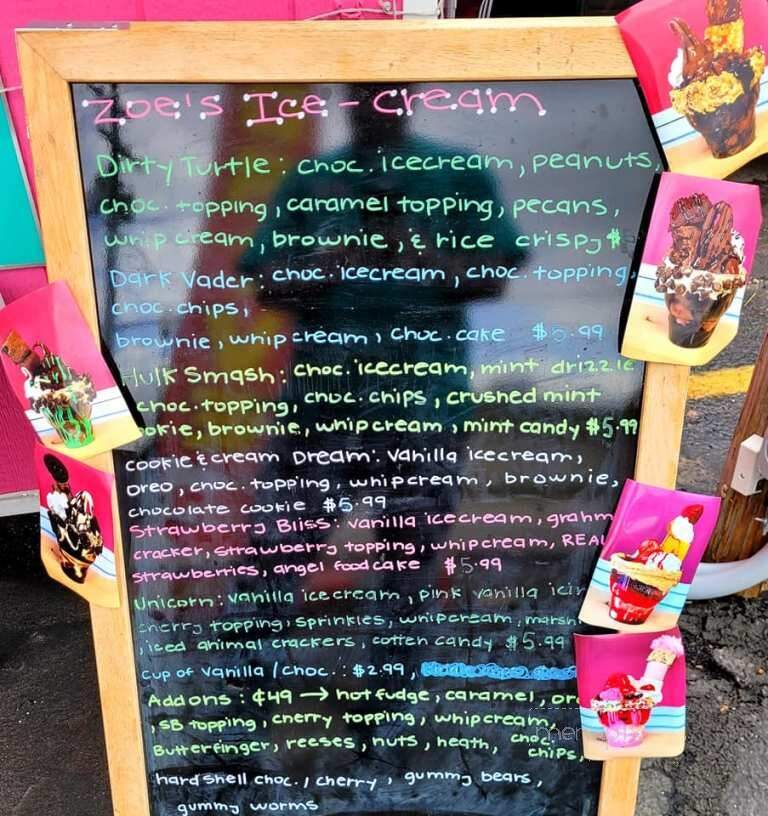 Zoe's Ice-cream
Dirty Turtle: choc. icecream, peanuts,
choc. topping, caramel topping, pecans,
whip cream, brownie, & rice crispy $
Dark Vader: choc. icecream, choc. topping,
choc. chips,
brownie, whip cream, choc. cake $5.99
Hulk Smash: choc. icecream, mint drizzle
choc. topping, choc. chips, crushed mint
brownie, whip cream, mint candy $5.99
cookie & cream Dream: vanilla icecream,
oreo, choc. topping, whip cream, brownie,
chocolate cookie $5.99
Strawberry Bliss: vanilla icecream, grahm
cracker, strawberry topping, whip cream, REAL
strawberries, angel food cake $5.99
Unicorn: vanilla icecream, pink vanilla
cherry topping, sprinkles, whip cream,
, iced animal crackers, cotten candy $5.99
cup of vanilla/choc.: $2.99,
Add ons: ¢49 → hot fudge, caramel,
, SB topping, cherry topping, whip cream,
Butterfinger, reeses, nuts, heath, choc. chips,
hardshell choc./cherry, gummy bears,
gummy worms